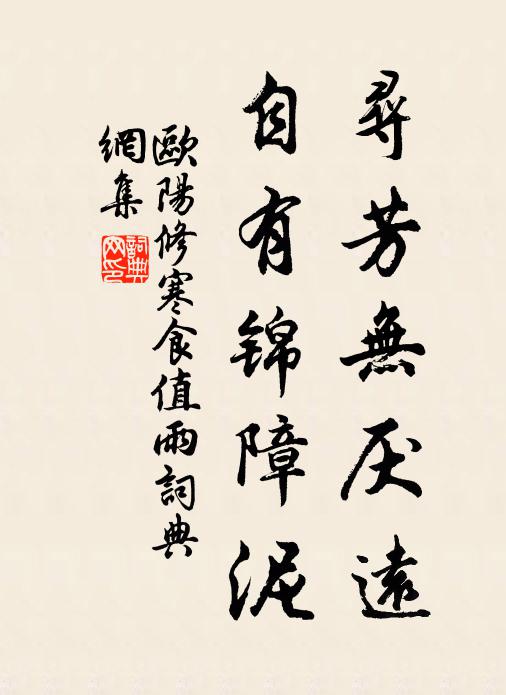 尋芳無厌遠
自有锦障泥
歐陽修寒食值雨詞典
網集
詞典
网印